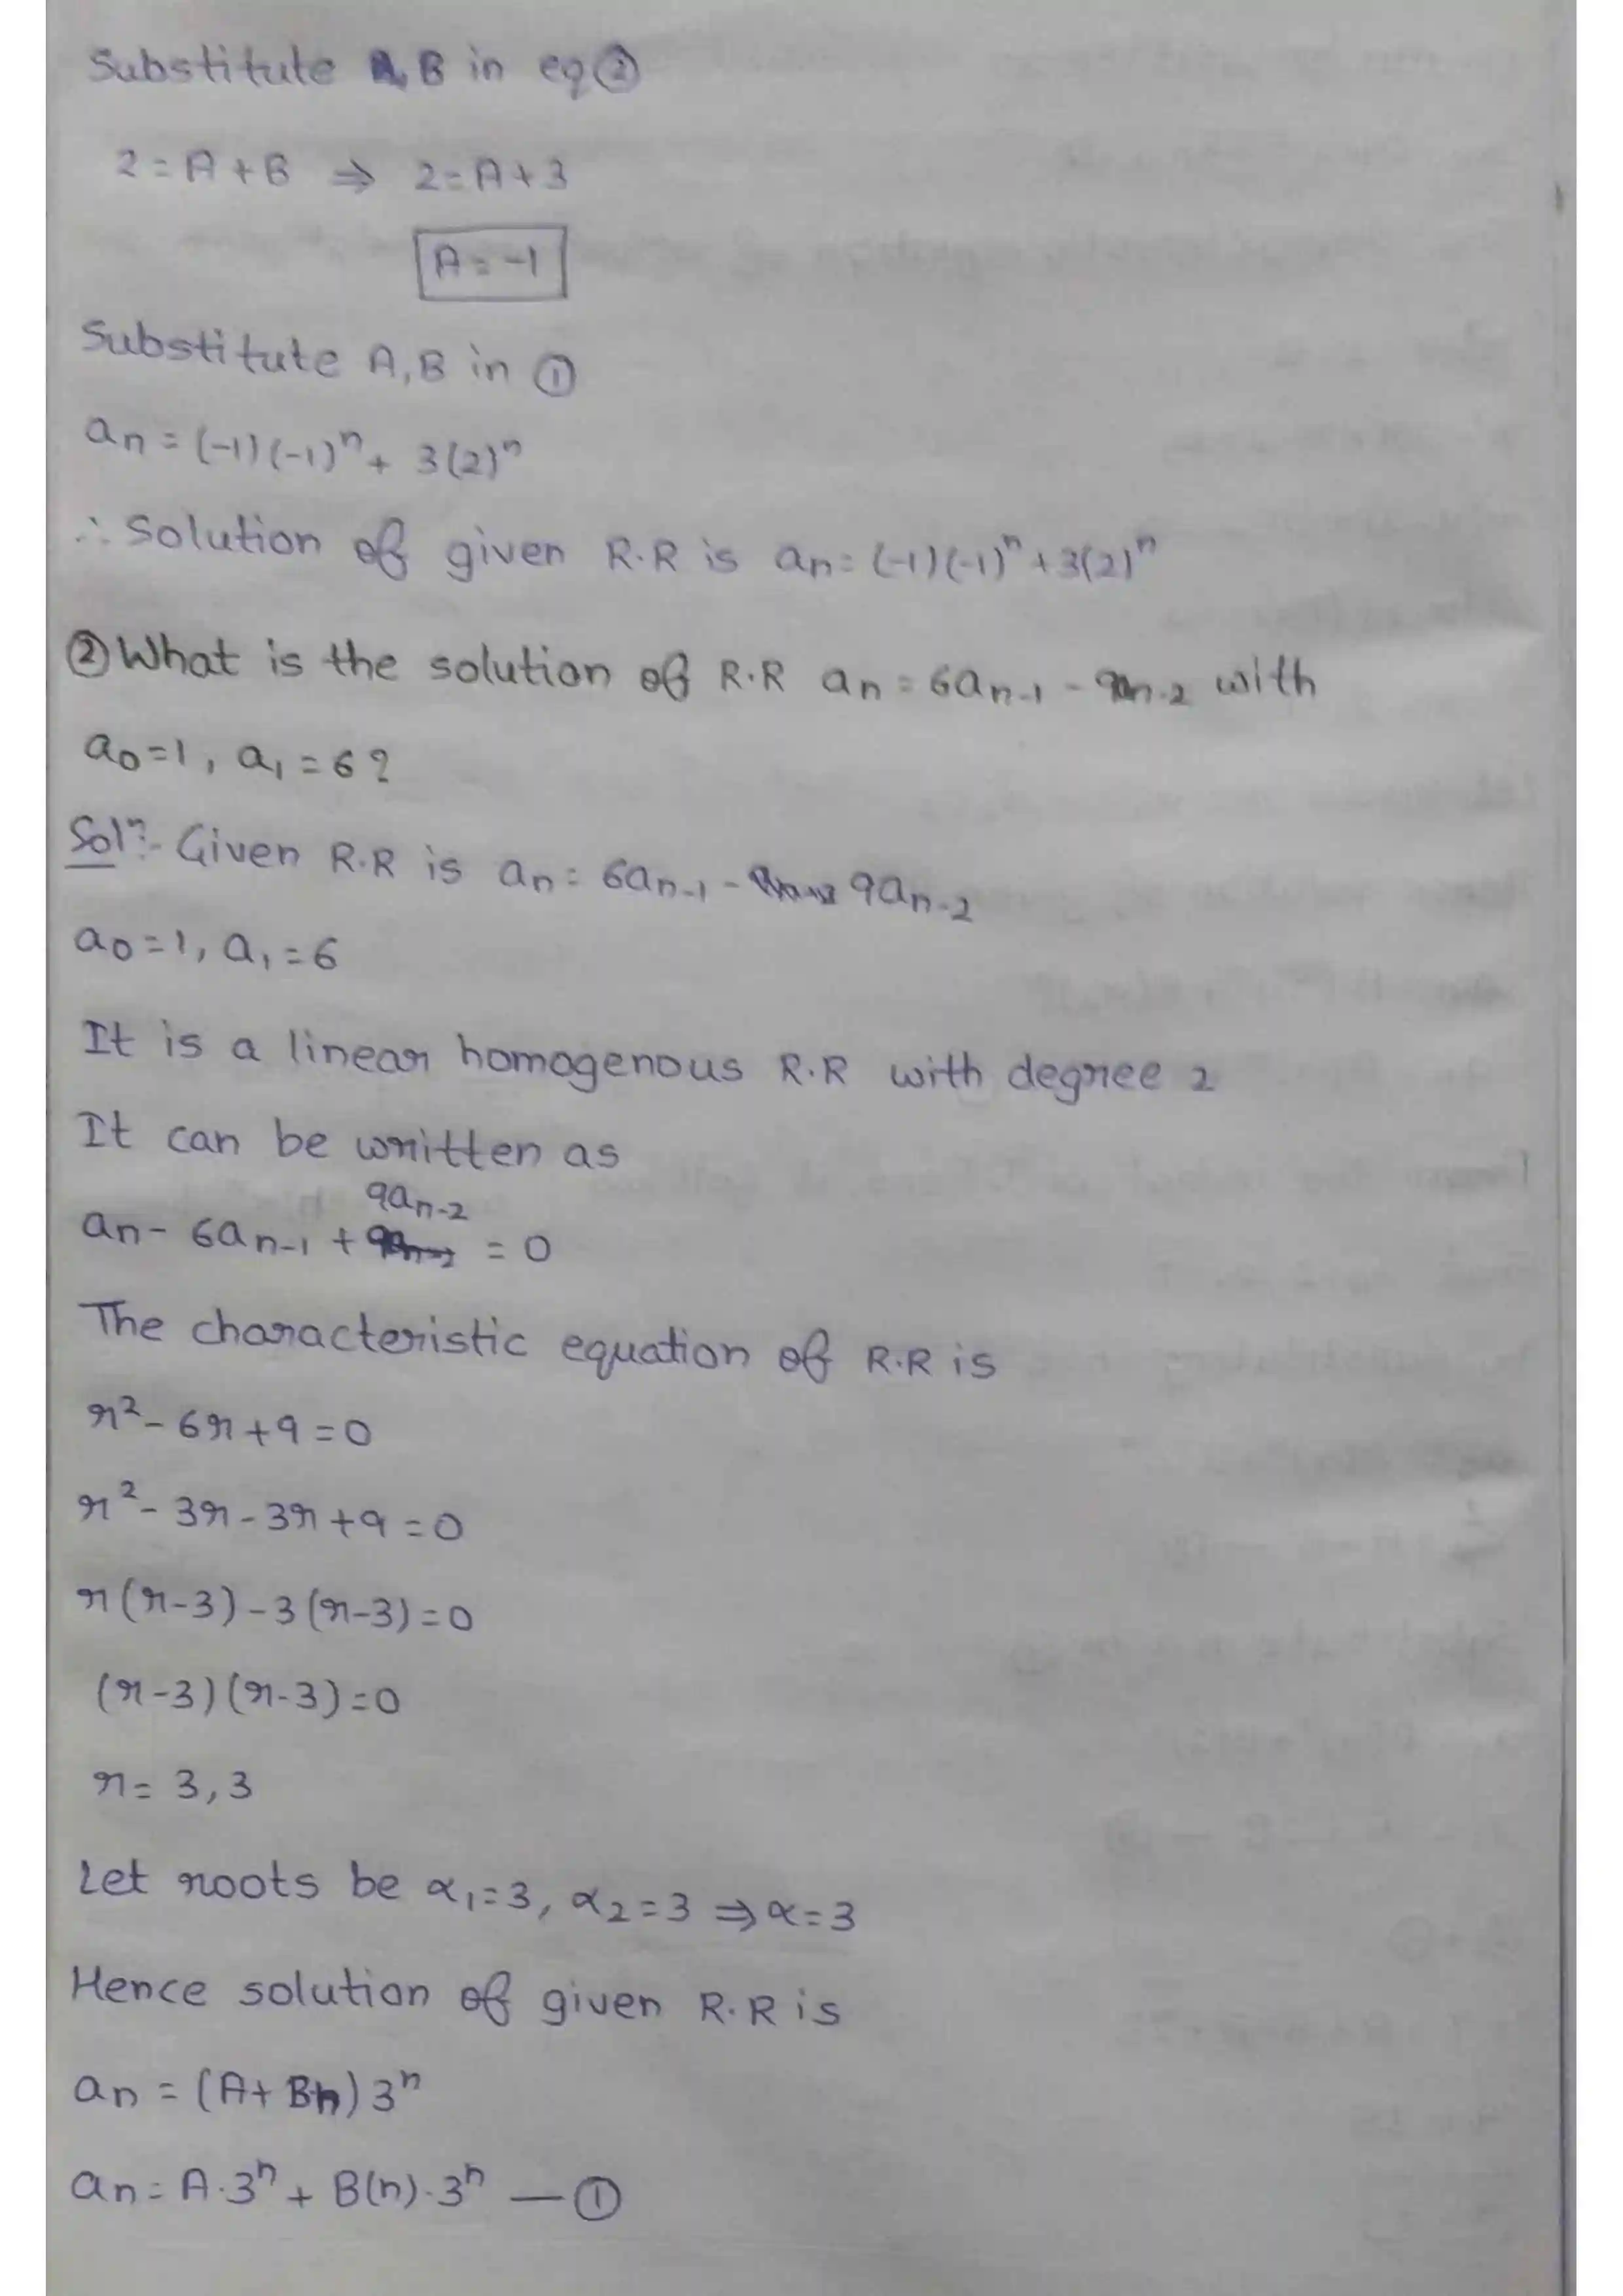 Substitute A, B in eq②
2 = A + B ⇒ 2 = A + 3
A = -1
Substitute A, B in ①
an = (-1)(-1)ⁿ + 3(2)ⁿ
∴ Solution of given R.R is an = (-1)(-1)ⁿ + 3(2)ⁿ
② What is the solution of R.R an = 6an-1 - 9an-2 with
a0 = 1, a1 = 6?
Solⁿ:- Given R.R is an = 6an-1 - 9an-2
a0 = 1, a1 = 6
It is a linear homogenous R.R with degree 2
It can be written as
an - 6an-1 + 9an-2 = 0
The characteristic equation of R.R is
r² - 6r + 9 = 0
r² - 3r - 3r + 9 = 0
r(r-3) - 3(r-3) = 0
(r-3)(r-3) = 0
r = 3, 3
Let roots be α1 = 3, α2 = 3 ⇒ α = 3
Hence solution of given R.R is
an = (A + Bn) 3ⁿ
an = A·3ⁿ + B(n)·3ⁿ — ①